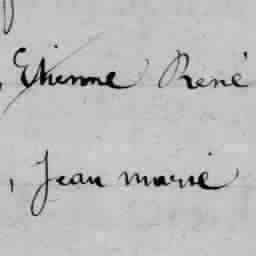 , Etienne René
, Jean marie